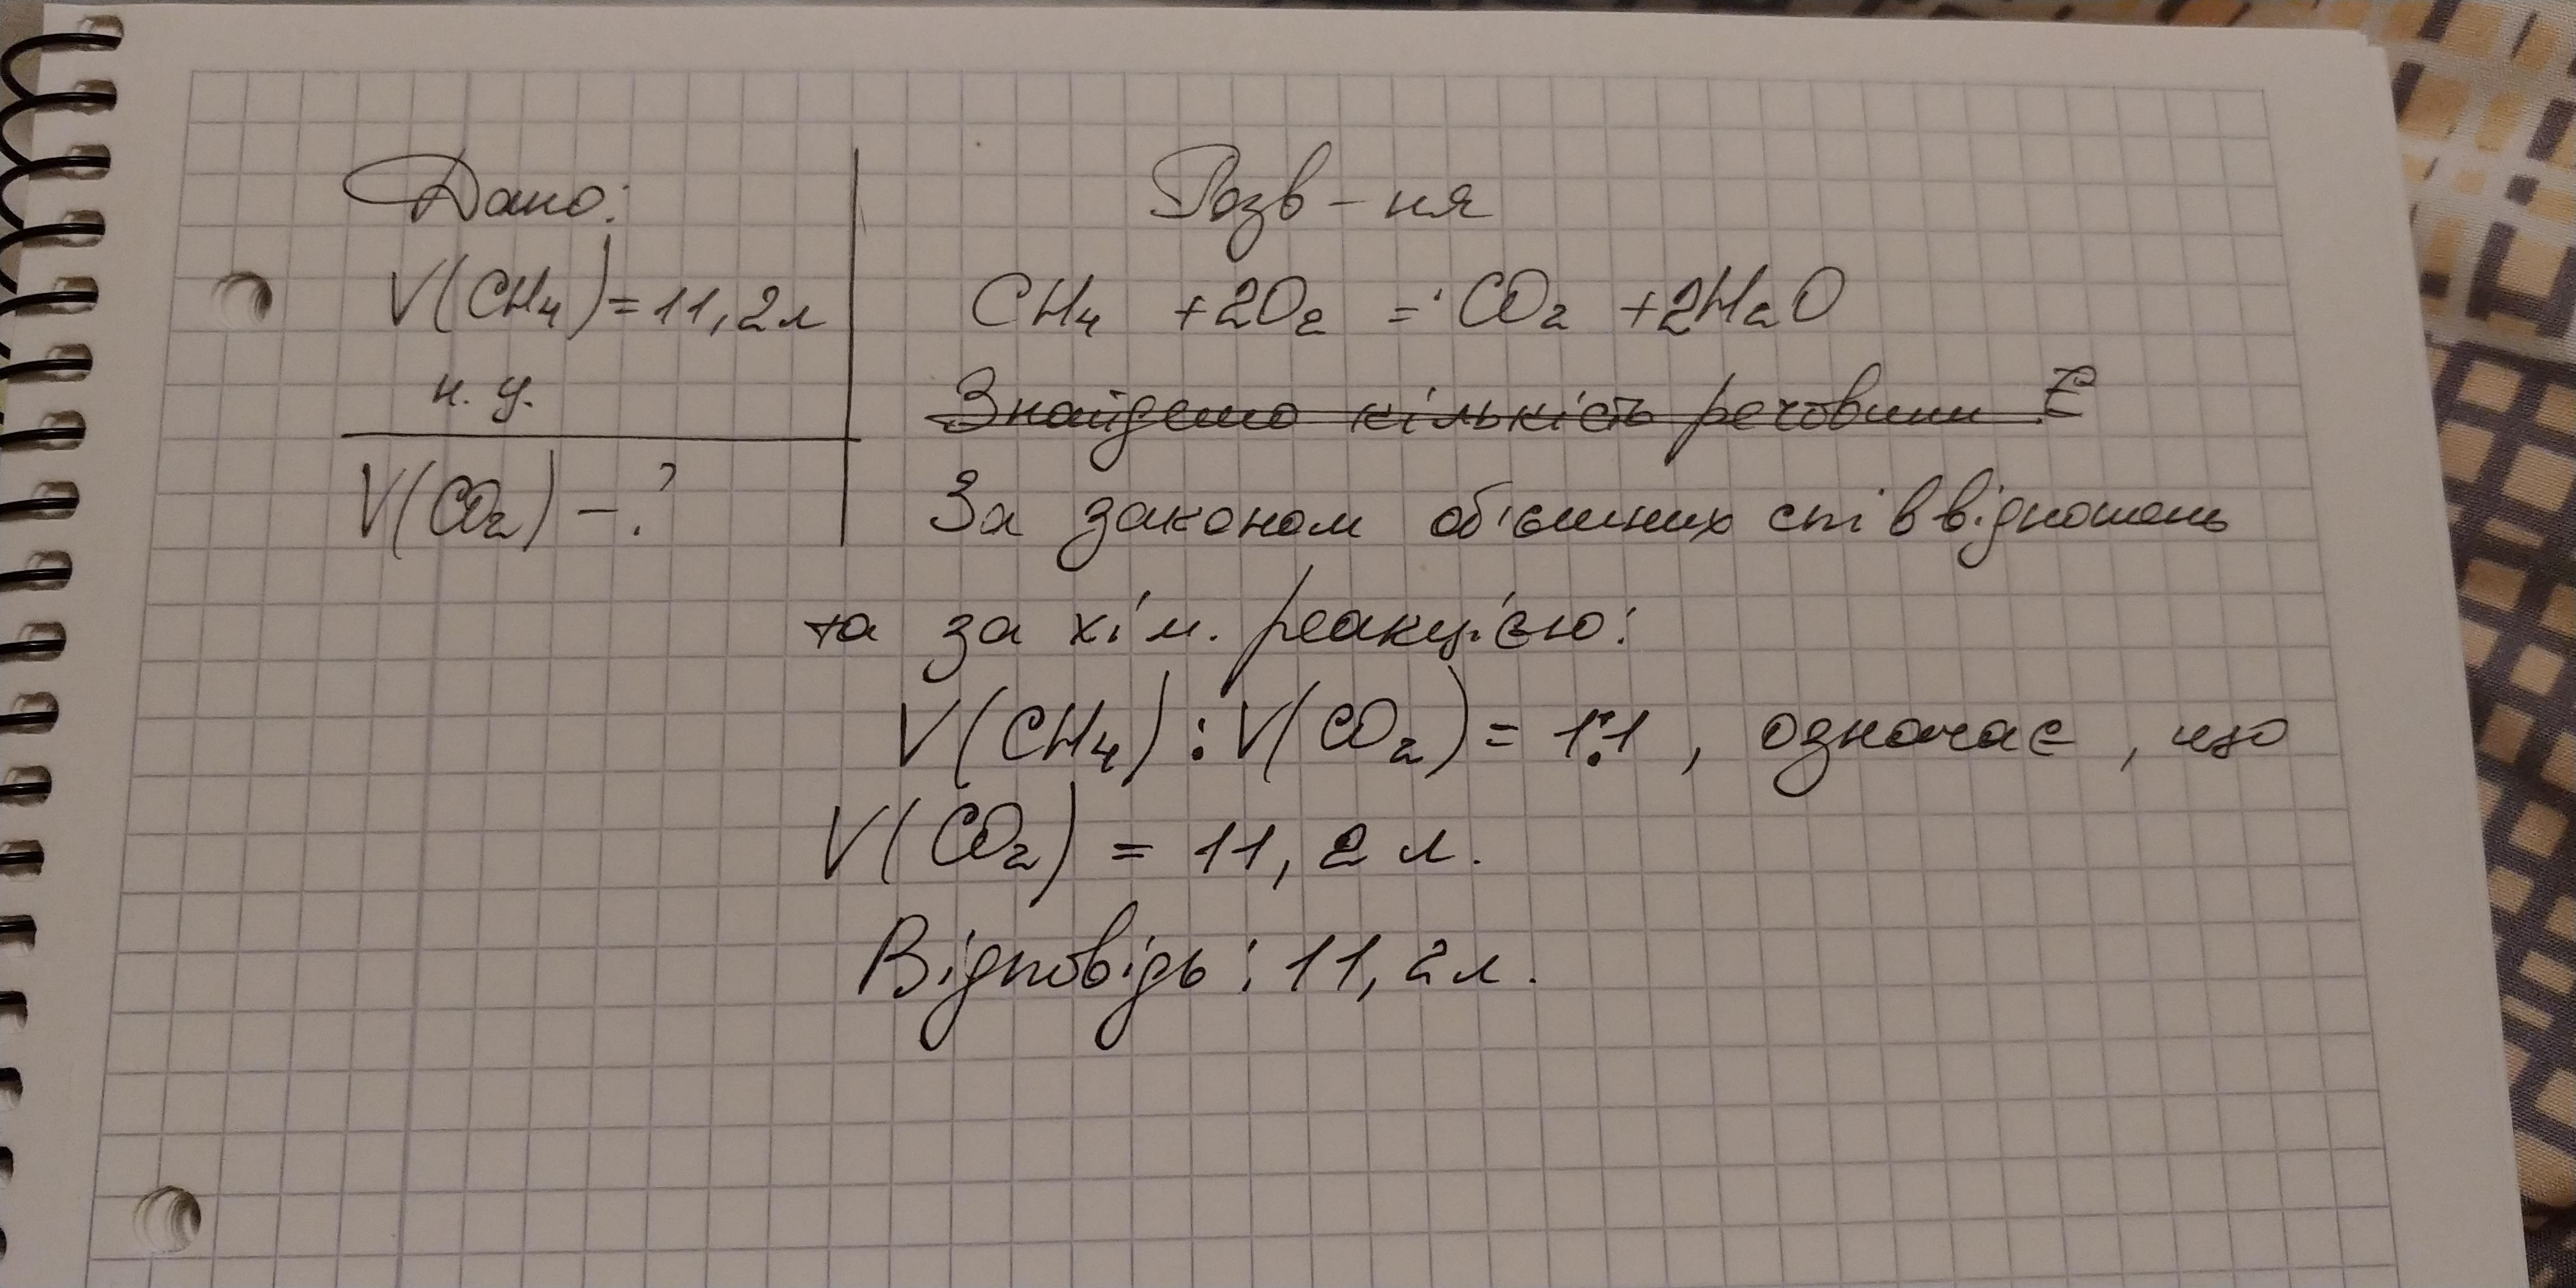 Дано:
V(CH₄) = 11,2л
н. у.
V(CO₂) - ?
Розв - ня
CH₄ + 2O₂ = CO₂ + 2H₂O
Знайдемо кількість речовини
За законом об'ємних співвідношень
та за хім. реакцією:
V(CH₄) : V(CO₂) = 1:1 , означає , що
V(CO₂) = 11, 2 л.
Відповідь : 11, 2л.